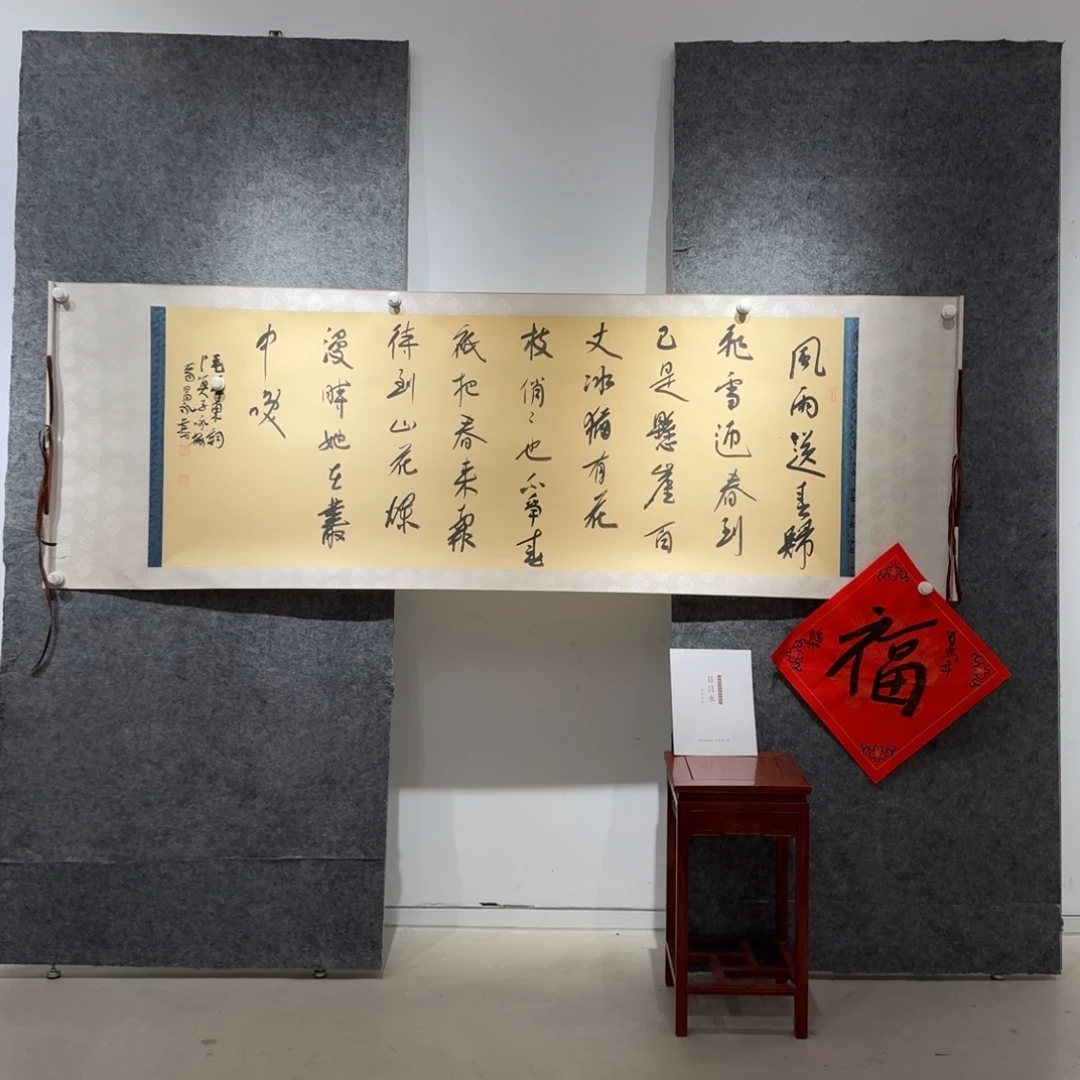 風雨送春歸
飛雪迎春到
已是懸崖百
丈冰猶有花
枝俏〻也不爭春
祇把春來報
待到山花爛
漫時她在叢
中笑
毛澤東詞
卜算子咏梅
福